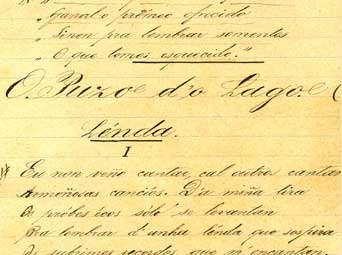 „ Ganal-o prémeo ofrecido
„ Sinon pra lembrar somentes
„ O que temos esquecido."
O Puzo d'o Lago.
Lénda.
I
Eu non veño cantar, cal outros cantan
Armoñosas canciós. D'a miña lira
Os próbes écos sólo se levantan
Pra lembrar d'unha lénda que sospira
Os subrimes recordos que m'encantan.